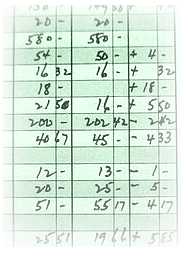 20 - 20 -
580 - 580 -
54 - 50 - + 4 -
16 32 16 - + 32
18 - + 18 -
21 50 16 - + 5 50
200 - 202 42 - 2 42
40 67 45 - - 4 33
12 - 13 - - 1 -
20 - 25 - - 5 -
51 - 55 17 - 4 17